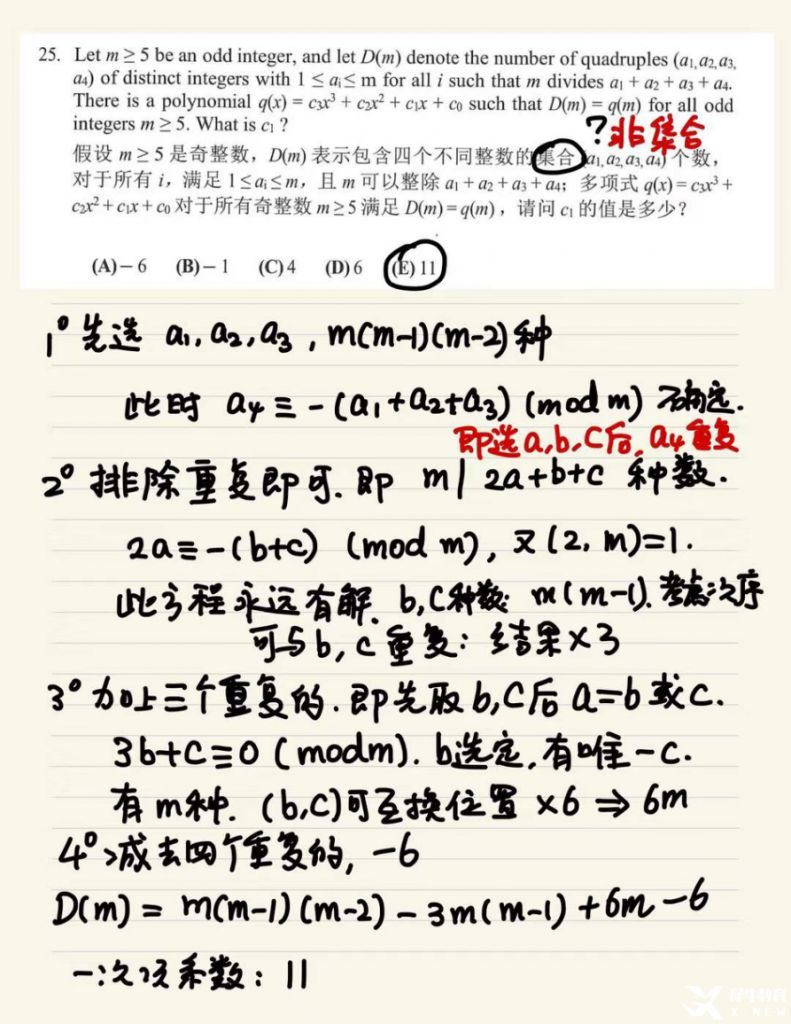 25. Let m ≥ 5 be an odd integer, and let D(m) denote the number of quadruples (a₁,a₂,a₃,
a₄) of distinct integers with 1 ≤ aᵢ ≤ m for all i such that m divides a₁ + a₂ + a₃ + a₄.
There is a polynomial q(x) = c₃x³ + c₂x² + c₁x + c₀ such that D(m) = q(m) for all odd
integers m ≥ 5. What is c₁ ?
?非集合
假设 m ≥ 5 是奇整数，D(m) 表示包含四个不同整数的集合 (a₁,a₂,a₃,a₄) 个数，
对于所有 i，满足 1 ≤ aᵢ ≤ m，且 m 可以整除 a₁ + a₂ + a₃ + a₄；多项式 q(x) = c₃x³ +
c₂x² + c₁x + c₀ 对于所有奇整数 m ≥ 5 满足 D(m) = q(m)，请问 c₁ 的值是多少？
(A) – 6 (B) – 1 (C) 4 (D) 6 (E) 11
1° 先选 a₁, a₂, a₃ , m(m-1)(m-2) 种
此时 a₄ ≡ -(a₁+a₂+a₃) (mod m) 确定.
即选a,b,c后, a₄重复
2° 排除重复即可. 即 m | 2a+b+c 种数.
2a ≡ -(b+c) (mod m), 又 (2, m)=1.
此方程永远有解. b,c种数: m(m-1). 考虑次序
可与b, c重复: 结果×3
3° 加上三个重复的. 即先取b,c后 a=b或c.
3b+c≡0 (modm). b选定, 有唯一c.
有m种. (b,c)可互换位置 ×6 ⇒ 6m
4° 减去四个重复的, -6
D(m) = m(m-1)(m-2) - 3m(m-1) + 6m - 6
一次项系数: 11
犀牛教育
X-NEW